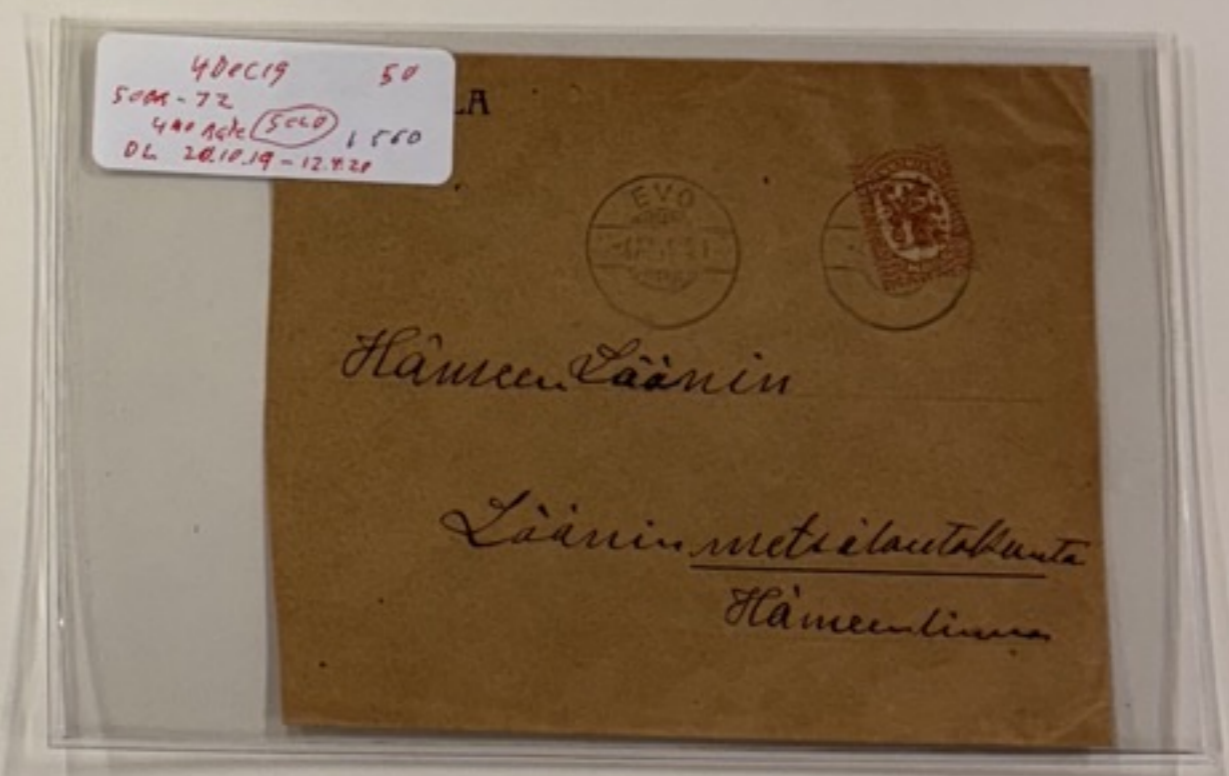 4 DEC 19 50
50
4 SOLO 1560
DL 20.10.19 - 12.4.20
LA
EVO
Hämeen Läänin
Läänin metsälautakunta
Hämeenlinna